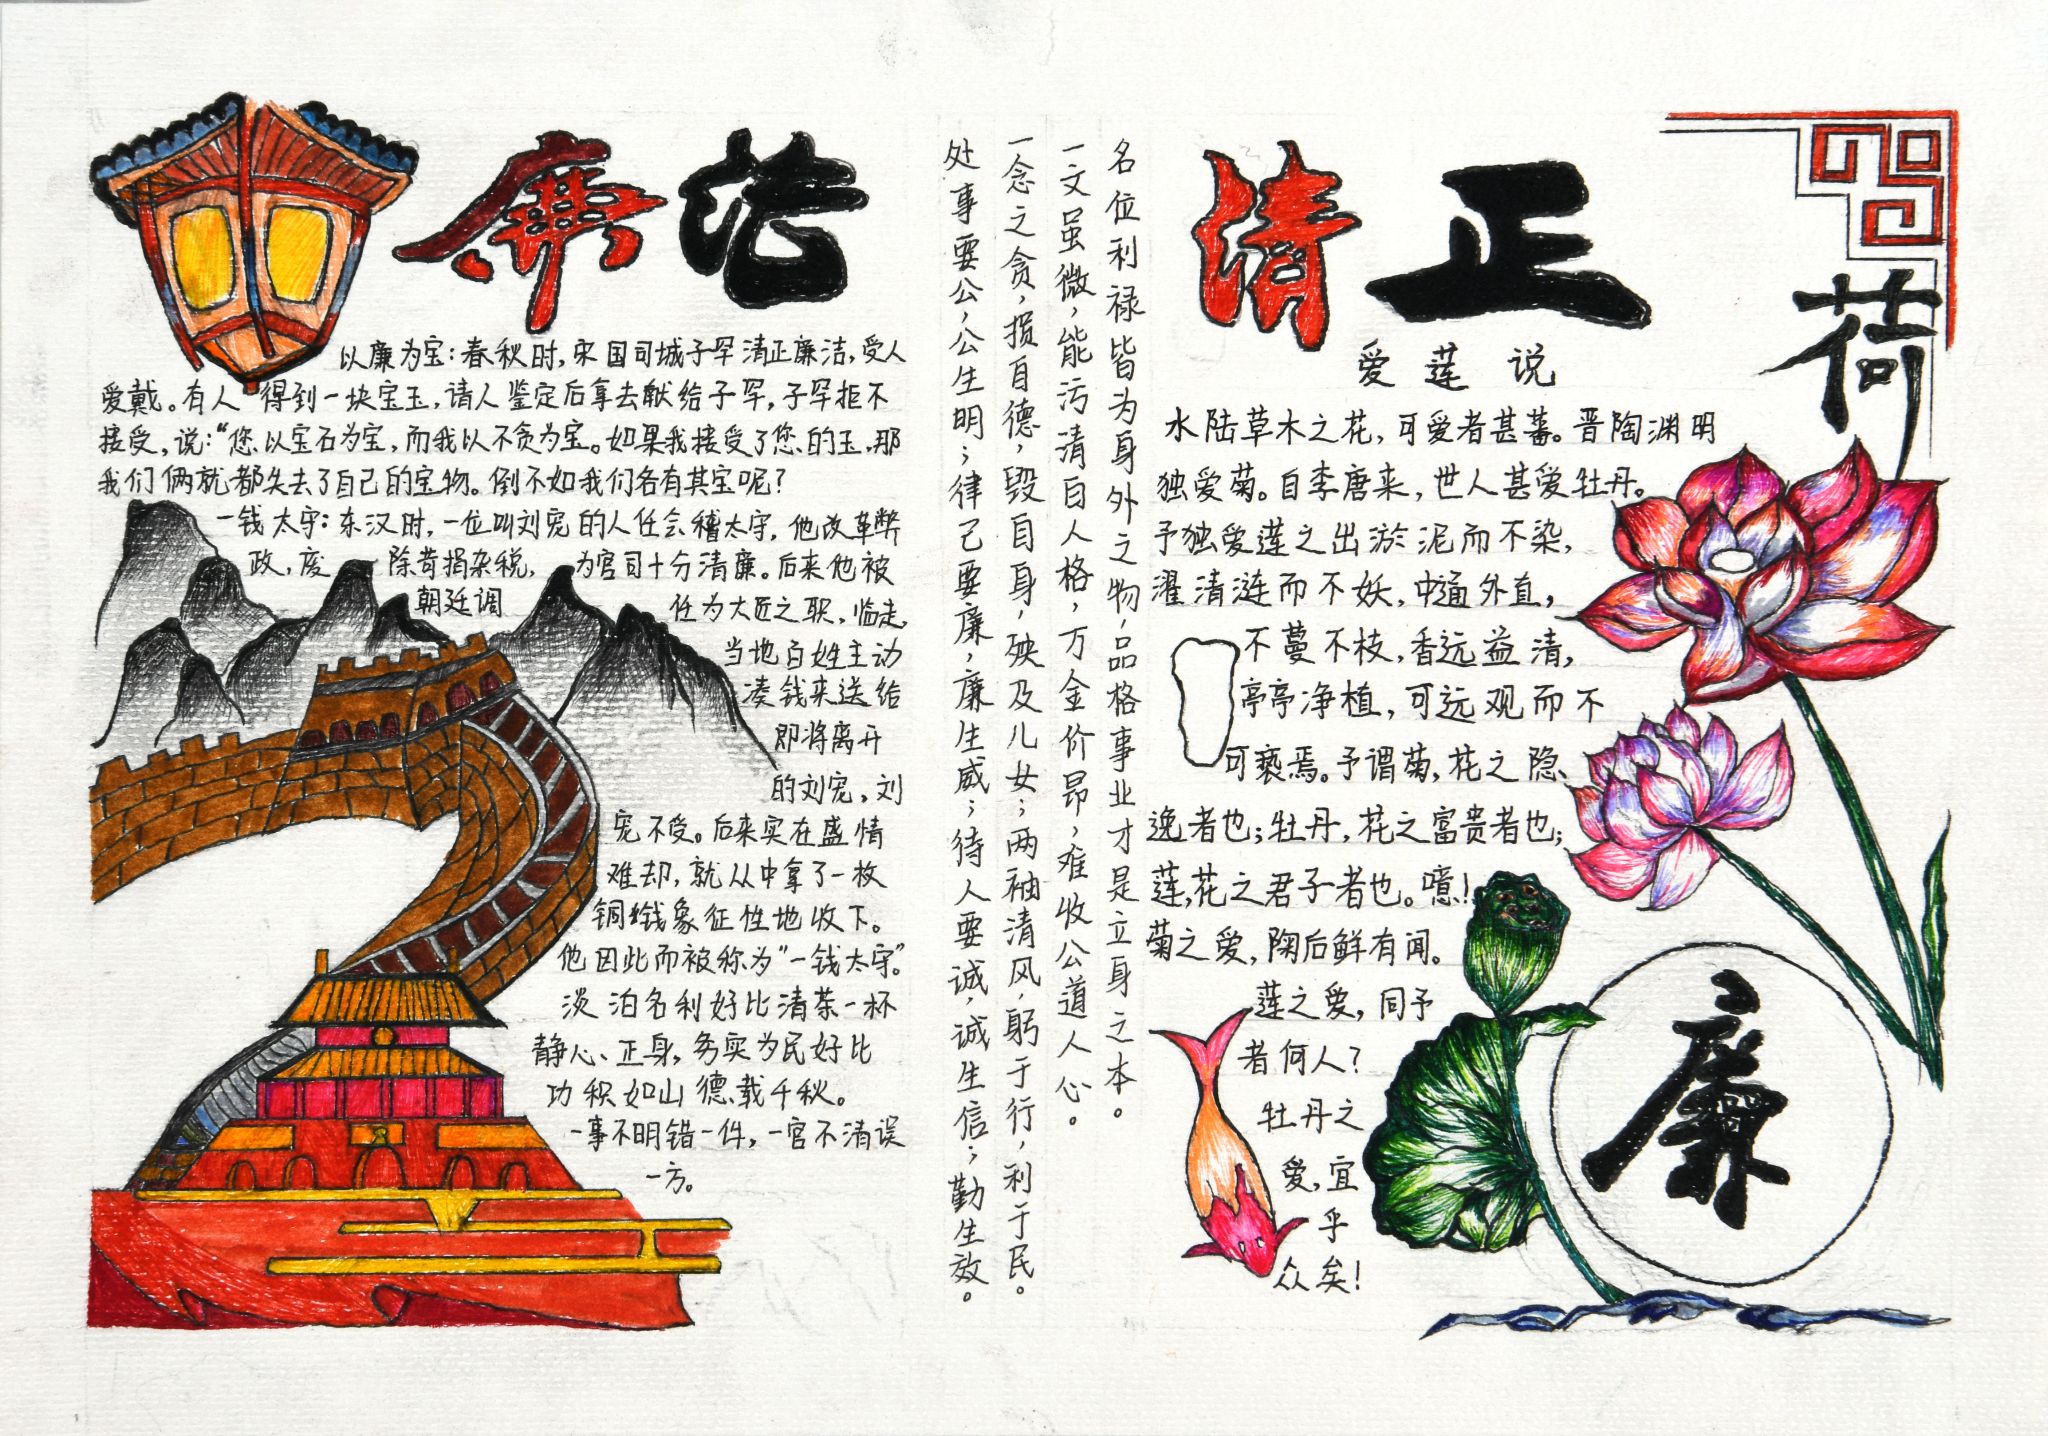 廉洁
以廉为宝：春秋时，宋国司城子罕清正廉洁，受人
爱戴。有人得到一块宝玉，请人鉴定后拿去献给子罕，子罕拒不
接受，说：“您以宝石为宝，而我以不贪为宝。如果我接受了您的玉，那
我们俩就都失去了自己的宝物。倒不如我们各有其宝呢？
一钱太守：东汉时，一位叫刘宠的人任会稽太守，他改革弊
政，废除苛捐杂税，为官司十分清廉。后来他被
朝廷调任为大匠之职，临走，
当地百姓主动
凑钱来送给
即将离开
的刘宠，刘
宠不受。后来实在盛情
难却，就从中拿了一枚
铜钱象征性地收下。
他因此而被称为“一钱太守”。
淡泊名利好比清茶一杯
静心、正身，务实为民好比
功积如山德载千秋。
一事不明错一件，一官不清误
一方。
名位利禄皆为身外之物，品格事业才是立身之本。
一文虽微，能污清白人格，万金价昂，难收公道人心。
一念之贪，损自德，毁自身，殃及儿女；两袖清风，躬于行，利于民。
处事要公，公生明；律己要廉，廉生威；待人要诚，诚生信；勤生效。
清正
荷
爱莲说
水陆草木之花，可爱者甚蕃。晋陶渊明
独爱菊。自李唐来，世人甚爱牡丹。
予独爱莲之出淤泥而不染，
濯清涟而不妖，中通外直，
不蔓不枝，香远益清，
亭亭净植，可远观而不
可亵焉。予谓菊，花之隐
逸者也；牡丹，花之富贵者也；
莲，花之君子者也。噫！
菊之爱，陶后鲜有闻。
莲之爱，同予
者何人？
牡丹之
爱，宜
乎
众矣！
廉